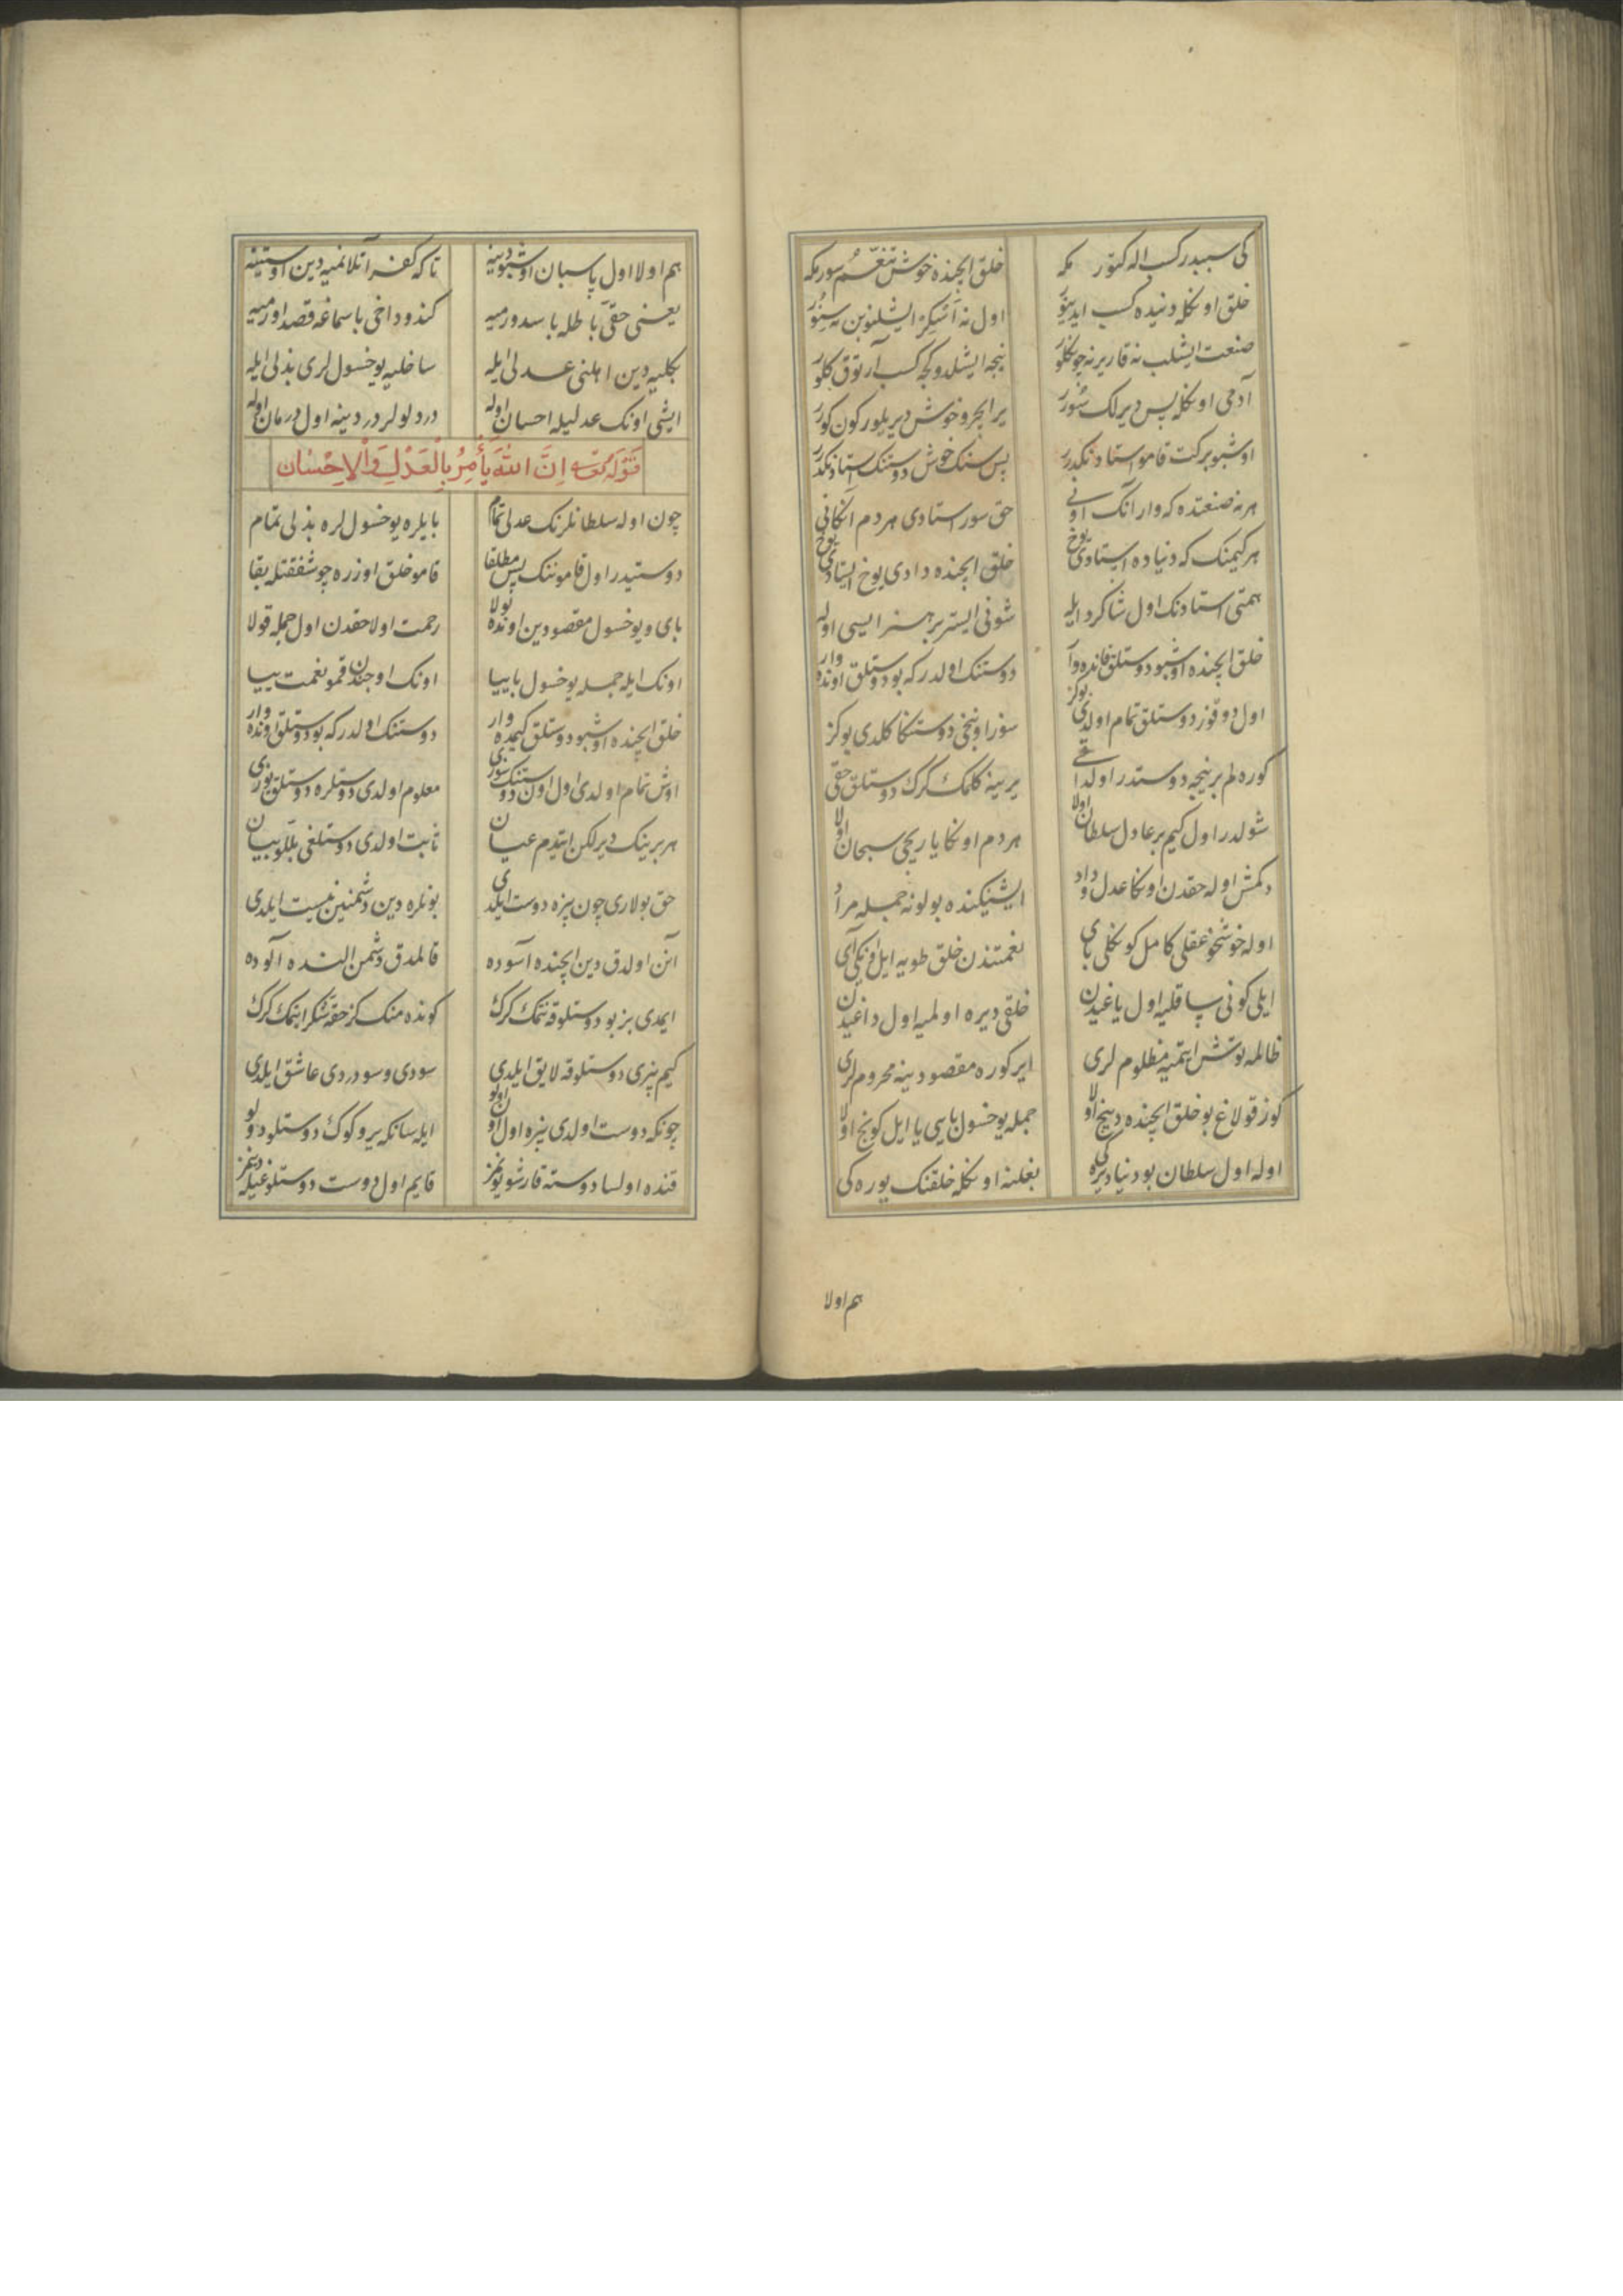 کی سببدر کسب اله کتور مکه خلق ایچنده خوش تنعّم سورمکه
خلق اونکله دنیده کسب ایدینور اول نه آشکز ایشلنوبن نه سنور
صنعت ایشلیب نه قاریرنه چونکلور نیجه ایشلدوکجه کسب آرتوق کلور
آدمی اونکله پس دیرلک سورر یر ایچر و خوش دیریلور کون کورر
اوشبو برکت قامو استادنکدرر پس سنک خوش دوستنک استادنکدرر
هر نه صنعتده که وار آنک اونی حق سور استادی هر دم انکانی
هر کیمنک که دنیاده استادی یوخ خلق ایچنده دادی یوخ استادی یوخ
همتی استادنک اول شاکرد ایله شونی ایستر بر هنر ایسی اوله
خلق ایچنده اوشبو دوستلق قانده وار دوستنک اولدر که بو دوستلق اونده وار
اول دوقوز دوستلق تمام اولدی بوکز سوز اونبخی دوستکا کلدی بوکز
کوره لم بر نیجه دوستدر اول داقی یرینه کلمک کرک دوستلق حقی
شولدر اول کیم بر عادل سلطان اولا هر دم اونکا یاریجی سبحان اولا
دکمش اوله حقدن اونکا عدل و داد ایشیکنده بولونه جمله مراد
اوله خوشخو عقلی کامل کونکلی بای نعمتندن خلق طویه ایل اونکی آی
ایلی کونی ساقلیه اول یاغیدن خلقی دیره اولمیه اول داغیدن
ظالمه توتش ایتمیه مظلوم لری ایرکوره مقصودینه محروم لری
کوز قولاغ بو خلق ایچنده دینج اولا جمله یوخسول بایسی یا ایل کونج اولا
اوله اول سلطان بو دنیا دیره کی بغلنه اونکله خلقنک یوره کی
هم اولا
هم اولا اول پاسبان اوشبو دینه تا که کفر آتلانمیه دین اوستینه
یعنی حقی باطله باسدورمیه کندو داخی باسماغه قصد اورمیه
بکلیه دین اهلنی عدلی ایله ساخلیه یوخسول لری بذلی ایله
ایشی اونک عدلیله احسان اوله دردلولر دردینه اول درمان اوله
قوله تعالی اِنَّ اللّٰهَ یَأْمُرُ بِالْعَدْلِ وَالْاِحْسَان
چون اوله سلطانلرنک عدلی تمام بایلره یوخسول لره بذلی تمام
دوستیدر اول قامونک پس مطلقا قامو خلق اوزره چو شفقتله بقا
بای و یوخسول مقصودین اونده بولا رحمت اولا حقدن اول جمله قولا
اونک ایله جمله یوخسول باییا اونک اوجندن قمو نعمت ییا
خلق ایچنده اوشبو دوستلق کیمده وار دوستنک اولدر که بو دوستلق اونده وار
اوش تمام اولدی اول اون دوستنک سوزی معلوم اولدی دوستلره دوستلق یوزی
هر برینک دیرلکن ایتدم عیان ثابت اولدی دوستلغی بللو بیان
حق بولاری چون بیزه دوست ایلدی بونلره دین دشمنین نیست ایلدی
آنن اولدق دین ایچنده آسوده قالمدق دشمن النده آلوده
ایمدی بز بو دوستلوقه نتمک کرک کونده منک کز حقه شکر ایتمک کرک
کیم بیزی دوستلوقه لایق ایلدی سودی و سودردی عاشق ایلدی
چونکه دوست اولدی بیزه اول اون اولو ایله سانکه یر و کوک دوستلو دولو
قنده اولسا دوسته قارشو یوزمز قایم اول دوست دوستلوغیله دیزمز